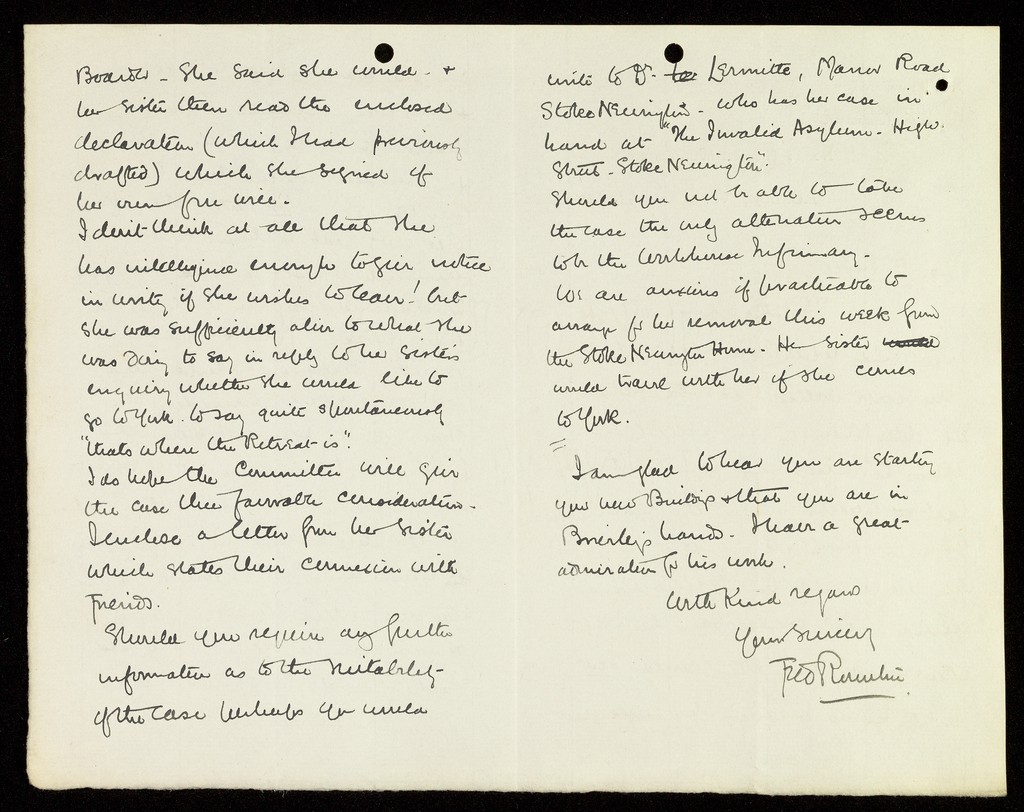 Boarder - She said she would - &
her sister then read the enclosed
declaration (which I had previously
drafted) which she signed of
her own free will.
I don't think at all that she
has intelligence enough to give notice
in writing if she wishes to leave! but
she was sufficiently alive to what she
was doing to say in reply to her sister's
enquiry whether she would like to
go to York. to say quite spontaneously
"thats where the Retreat is".
I do hope the Committee will give
the case their favorable consideration -
I enclose a letter from her sister
which states their connexion with
Friends.
Should you require any further
information as to the suitability
of the case perhaps you would
write to Dr. Lermitte, Manor Road
Stoke Newington - who has her case in
hand at "The Invalid Asylum - High
Street - Stoke Newington".
Should you not be able to take
the case the only alternative seems
to be the Workhouse Infirmary -
We are anxious if practicable to
arrange for her removal this week from
the Stoke Newington Home - Her sister
would travel with her if she comes
to York.
I am glad to hear you are starting
your new Buildings & that you are in
Brierley's hands. I have a great
admiration for his work.
With Kind regards
Yours sincerely
Fred